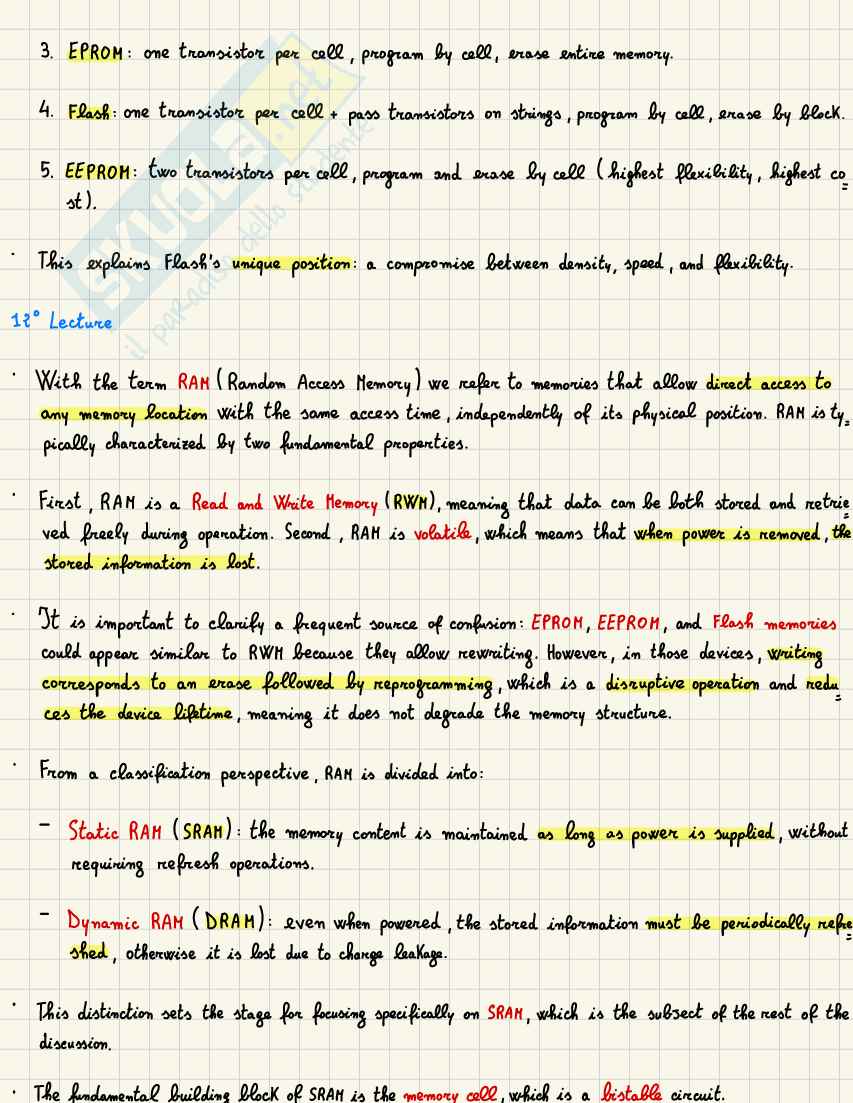 3. EPROM: one transistor per cell, program by cell, erase entire memory.
4. Flash: one transistor per cell + pass transistors on strings, program by cell, erase by block.
5. EEPROM: two transistors per cell, program and erase by cell (highest flexibility, highest co=
st).
· This explains Flash's unique position: a compromise between density, speed, and flexibility.
12° Lecture
· With the term RAM (Random Access Memory) we refer to memories that allow direct access to
any memory location with the same access time, independently of its physical position. RAM is ty=
pically characterized by two fundamental properties.
· First, RAM is a Read and Write Memory (RWM), meaning that data can be both stored and retrie=
ved freely during operation. Second, RAM is volatile, which means that when power is removed, the
stored information is lost.
· It is important to clarify a frequent source of confusion: EPROM, EEPROM, and Flash memories
could appear similar to RWM because they allow rewriting. However, in those devices, writing
corresponds to an erase followed by reprogramming, which is a disruptive operation and redu=
ces the device lifetime, meaning it does not degrade the memory structure.
· From a classification perspective, RAM is divided into:
- Static RAM (SRAM): the memory content is maintained as long as power is supplied, without
requiring refresh operations.
- Dynamic RAM (DRAM): even when powered, the stored information must be periodically refre=
shed, otherwise it is lost due to charge leakage.
· This distinction sets the stage for focusing specifically on SRAM, which is the subject of the rest of the
discussion.
· The fundamental building block of SRAM is the memory cell, which is a bistable circuit.
SKUOLA.net
il paradiso dello studente